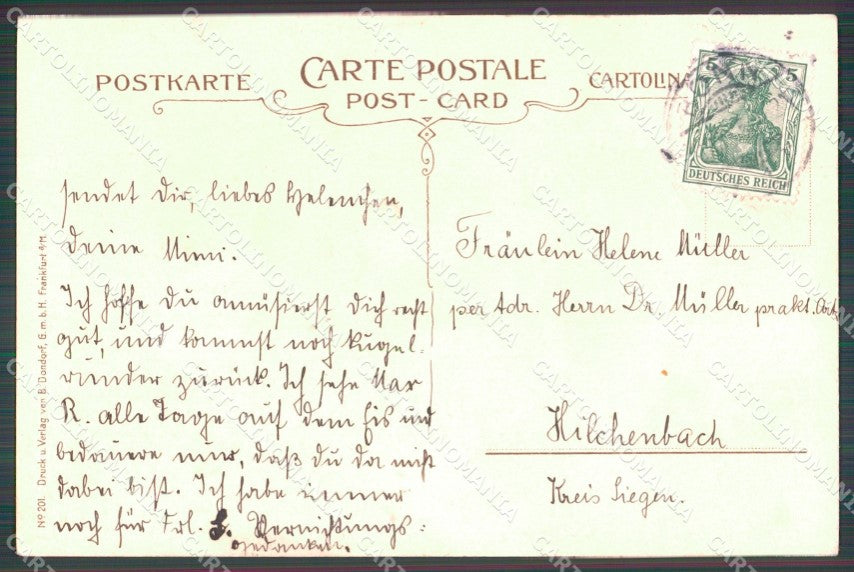 POSTKARTE
CARTE POSTALE
CARTOLINA
POST-CARD
5 5
DEUTSCHES REICH
sendet dir, liebes Helenchen,
deine Mimi.
Ich hoffe du amüsierst dich recht
gut, und kommst noch kugel-
runder zurück. Ich sehe Max
R. alle Tage auf dem Eis und
bedauere nur, daß du da nicht
dabei bist. Ich habe immer
noch für Frl. L. Vernichtungs:
gedanken.
Fräulein Helene Müller
per Adr. Herrn Dr. Müller prakt. Arzt
Hilchenbach
Kreis Siegen.
Nº 201. Druck u. Verlag von B. Dondorf, G.m.b.H. Frankfurt a/M.
CARTOLINOMANIA